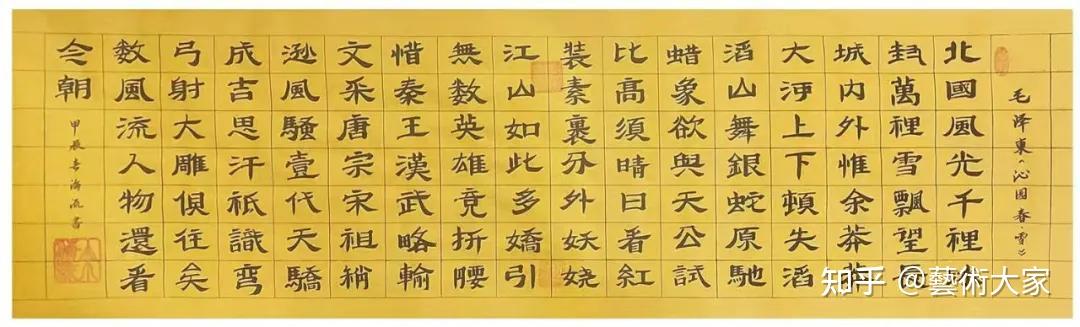 毛泽東《沁园春·雪》
北國風光千裡冰
封萬裡雪飄望長
城内外惟余莽莽
大河上下頓失滔
滔山舞銀蛇原馳
蜡象欲與天公試
比高須晴日看紅
裝素裹分外妖娆
江山如此多嬌引
無数英雄竞折腰
惜秦王漢武略輸
文采唐宗宋祖稍
遜風騷壹代天驕
成吉思汗祇識彎
弓射大雕俱往矣
数風流人物還看
今朝
甲辰春書
知乎 @藝術大家